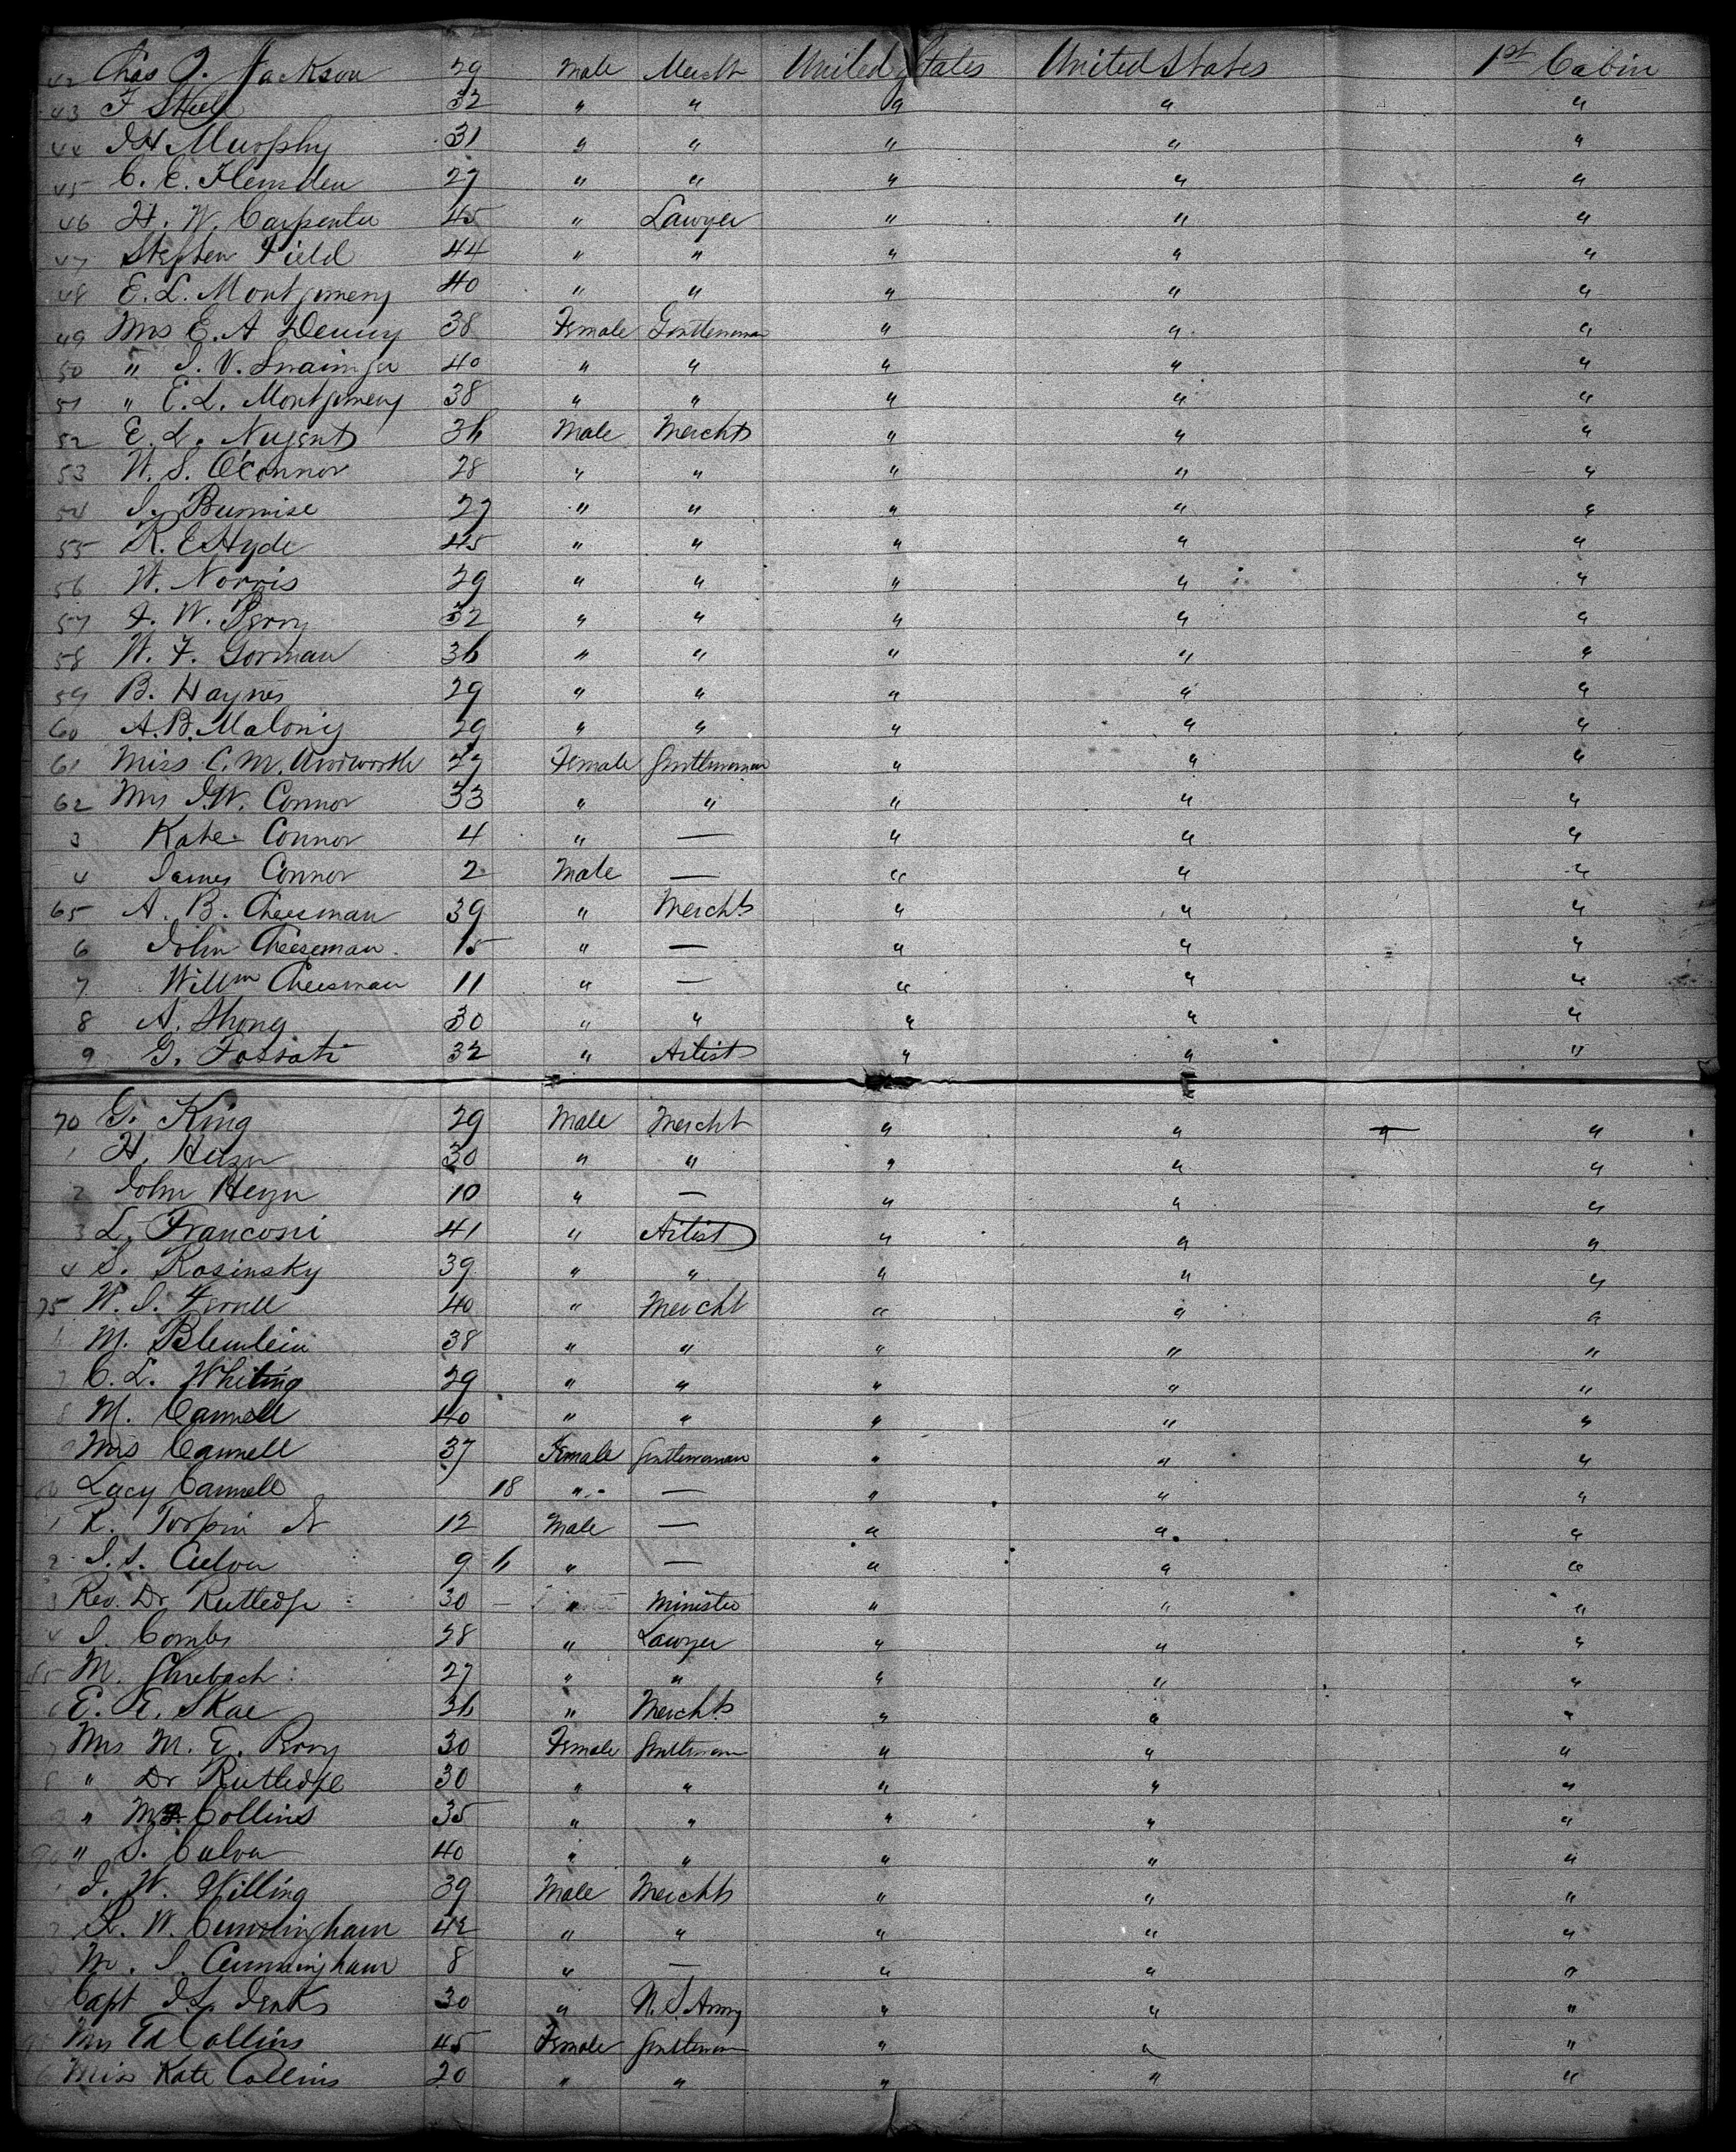 42 Chas J. Jackson 29 Male Mercht United States United States 1st Cabin
43 F Steel 32 " " " " "
44 J H Murphy 31 " " " " "
45 C. E. 27 " " " " "
46 H. W. Carpenter 45 " Lawyer " " "
47 Stephen Field 44 " " " " "
48 E. L. Montgomery 40 " " " " "
49 Mrs E. A Denny 38 Female Gentlewoman " " "
50 " J. V. 40 " " " " "
51 " E. L. Montgomery 38 " " " " "
52 E. L. Nugent 36 Male Mercht " " "
53 W. S. O'Connor 28 " " " " "
54 S. 27 " " " " "
55 R. E Hyde 45 " " " " "
56 W. Norris 29 " " " " "
57 F. W. Perry 32 " " " " "
58 W. F. Gorman 36 " " " " "
59 B. Haynes 29 " " " " "
60 A. B. Malony 29 " " " " "
61 Miss C. M. Woodworth 27 Female Gentlewoman " " "
62 Mrs J. W. Connor 33 " " " " "
3 Kate Connor 4 " — " " "
4 James Connor 2 Male — " " "
65 A. B. Cheesman 39 " Mercht " " "
6 John Cheeseman 15 " — " " "
7 Willm Cheesman 11 " — " " "
8 A. 30 " " " " "
9 G. Fossati 32 " Artist " " "
70 G. King 29 Male Mercht " " " "
1 H. 30 " " " " "
2 John Heyn 10 " — " " "
3 L. Franconi 41 " Artist " " "
4 S. Rosinsky 39 " " " " "
75 W. S. 40 " Mercht " " "
6 M. 38 " " " " "
7 C. L. Whiting 29 " " " " "
8 M. Cannell 40 " " " " "
9 Mrs Cannell 37 Female Gentlewoman " " "
80 Lucy Cannell 18 " — " " "
1 R. Turpin 12 Male — " " "
2 J. S. 9 6 " — " " "
3 Rev. Dr Rutledge 30 — " Minister " " "
4 S. Combs 28 " Lawyer " " "
85 M. 27 " " " " "
6 E. E. Skae 36 " Mercht " " "
7 Mrs M. E. Perry 30 Female Gentlewoman " " "
8 " Dr Rutledge 30 " " " " "
9 " Collins 35 " " " " "
90 " S. 40 " " " " "
1 J. W. Willing 39 Male Mercht " " "
2 R. W. Cunningham 42 " " " " "
3 M. S. Cunningham 8 " — " " "
4 Capt J L. Jenks 30 " U. S Army " " "
95 Mrs Ed Collins 45 Female Gentlewoman " " "
6 Miss Kate Collins 20 " " " " "